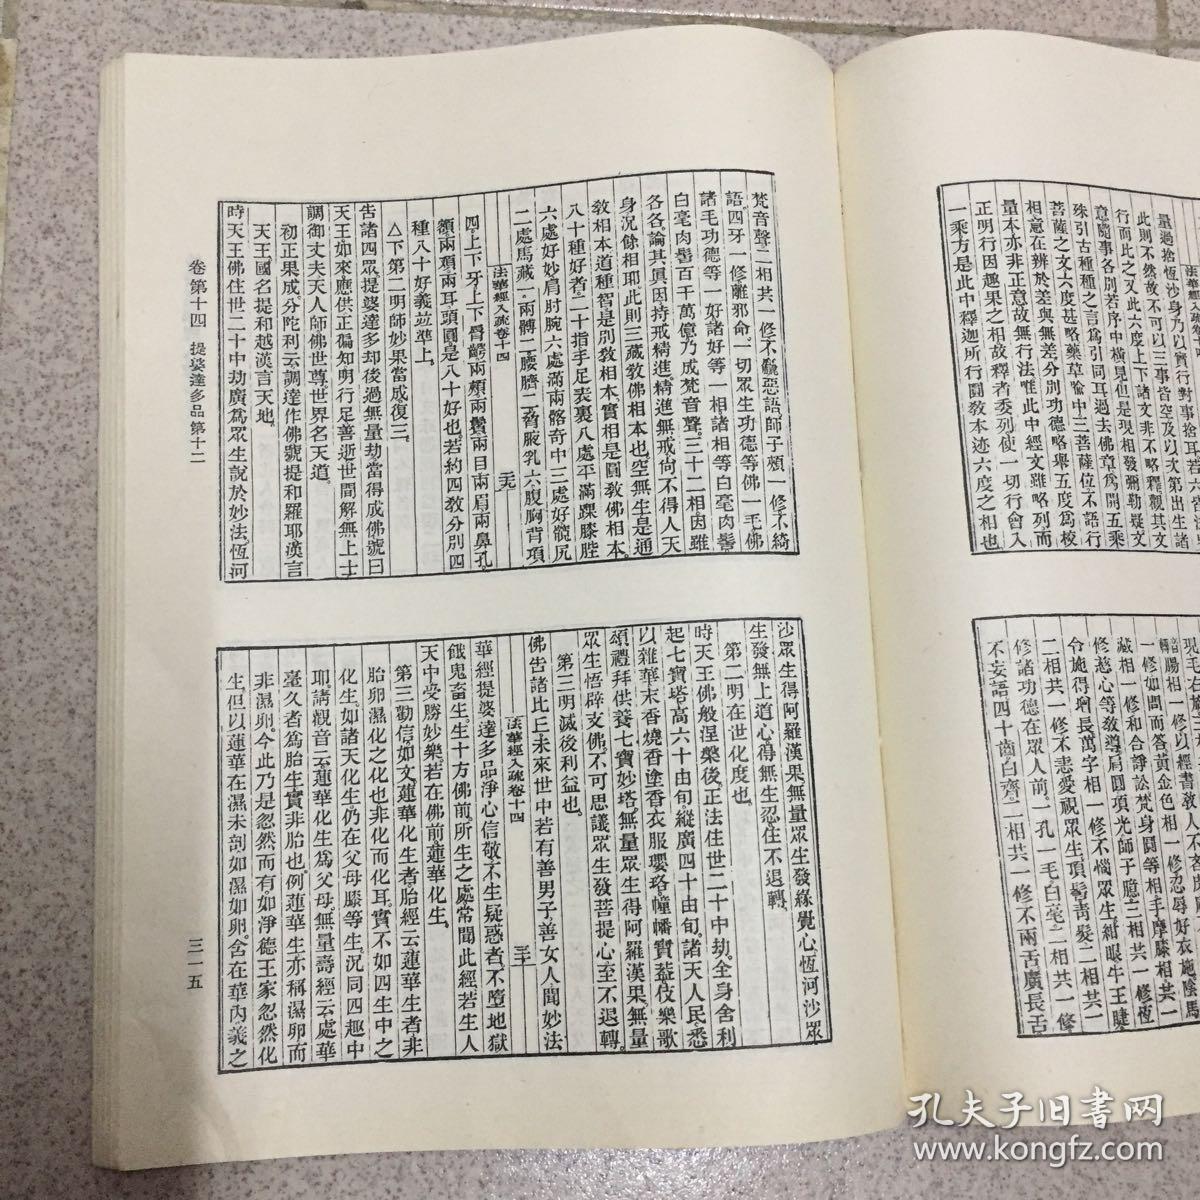 量過捨恆沙身乃以實行對事捨耳若六
此則不然故不可以三事皆空及以次第出生諸
行而此之又此六度上下諸文非不略釋觀其文
意隨事各別若序中橫見但是現相發彌勒疑文
殊引古種種之言為引同耳過去佛章為開五乘
菩薩之文六度甚略藥草喻中三菩薩位不語行
相意在辨於差與無差分別功德略舉五度為校
量本亦非正意故無行法唯此中經文雖略列而
正明行因趣果之相故釋者委列使一切行會入
一乘方是此中釋迦所行圓教本迹六度之相也
腸相一修以經書教人不
一修如問而答黃金色相一修忍辱好衣施陰馬
藏相一修和合諍訟梵身圓等相手摩膝相共一
修慈心等教導肩圓項光師子臆三相共一修恆
令施得增長萬字相一修不惱眾生紺眼牛王睫
二相共一修不恚愛視眾生頂髻靑髮二相共一
修諸功德在眾人前一孔一毛白毫二相共一修
不妄語四十齒白齊二相共一修不兩舌廣長舌
梵音聲二相共一修不麤惡語師子頰一修不綺
語四牙一修離邪命一切眾生功德等佛一毛佛
諸毛功德等一好諸好等一相諸相等白毫肉髻
白毫肉髻百千萬億乃成梵音聲三十二相因雖
各各論其眞因持戒精進無戒尚不得人天
身況餘相耶此則三藏敎佛相本也空無生是通
敎相本道種智是別敎相本實相是圓敎佛相本
八十種好者二十指手足表裏八處平滿踝膝䏶
六處好妙肩肘腕六處滿兩髂奇中三處好髖尻
二處馬藏一兩髆二腰臍二脅腋乳六腹胸背項
法華經入疏卷十四 二九
四上下牙上下脣齶兩頰兩鬢兩目兩眉兩鼻孔
額兩頭兩耳頭圓是八十好也若約四敎分別四
種八十好義竝準上
△下第二明師妙果當成復三
告諸四眾提婆達多却後過無量劫當得成佛號曰
天王如來應供正徧知明行足善逝世間解無上士
調御丈夫天人師佛世尊世界名天道
初正果成分陀利云調達作佛號提和羅耶漢言
天王國名提和越漢言天地
時天王佛住世二十中劫廣爲眾生說於妙法恆河
沙眾生得阿羅漢果無量眾生發緣覺心恆河沙眾
生發無上道心得無生忍住不退轉
第二明在世化度也
時天王佛般涅槃後正法住世二十中劫全身舍利
起七寶塔高六十由旬縱廣四十由旬諸天人民悉
以雜華末香燒香塗香衣服瓔珞幢幡寶蓋伎樂歌
頌禮拜供養七寶妙塔無量眾生得阿羅漢果無量
眾生悟辟支佛不可思議眾生發菩提心至不退轉
第三明滅後利益也
佛告諸比丘未來世中若有善男子善女人聞妙法
法華經入疏卷十四 三十
華經提婆達多品淨心信敬不生疑惑者不墮地獄
餓鬼畜生生十方佛前所生之處常聞此經若生人
天中受勝妙樂若在佛前蓮華化生
第三勸信如文蓮華化生者胎經云蓮華生者非
胎卵濕化之化也非化而化耳實不如四生中之
化生如諸天化生仍在父母膝等生況同四趣中
耶請觀音云蓮華化生爲父母無量壽經云處華
臺久者爲胎生實非胎也例蓮華生亦稱濕卵而
非濕卵今此乃是忽然而有如淨德王家忽然化
生但以蓮華在濕未剖如濕如卵含在華內義之
卷第十四 提婆達多品第十二
三一五
孔夫子旧書网
www.kongfz.com